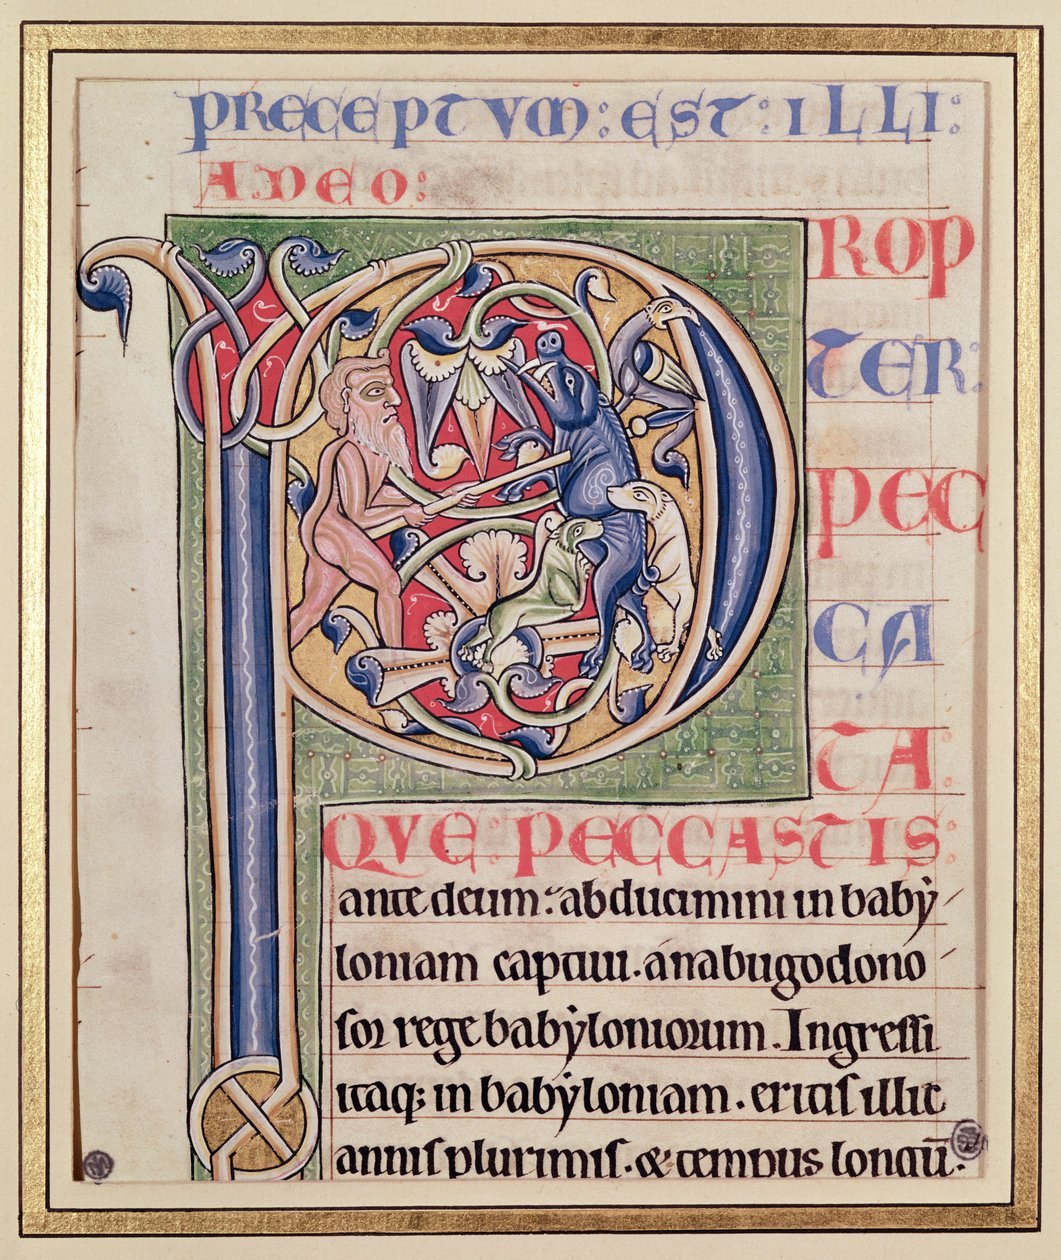 PRECEPTVM: EST: ILLI:
A DEO:
PROP
TER:
PEC
CA
TA:
QVE: PECCASTIS:
ante deum: abducimini in baby
loniam captiui. anabugodono
sor rege babyloniorum. Ingressi
itaq; in babyloniam. eritis illic
annis plurimis. & tempus longū.